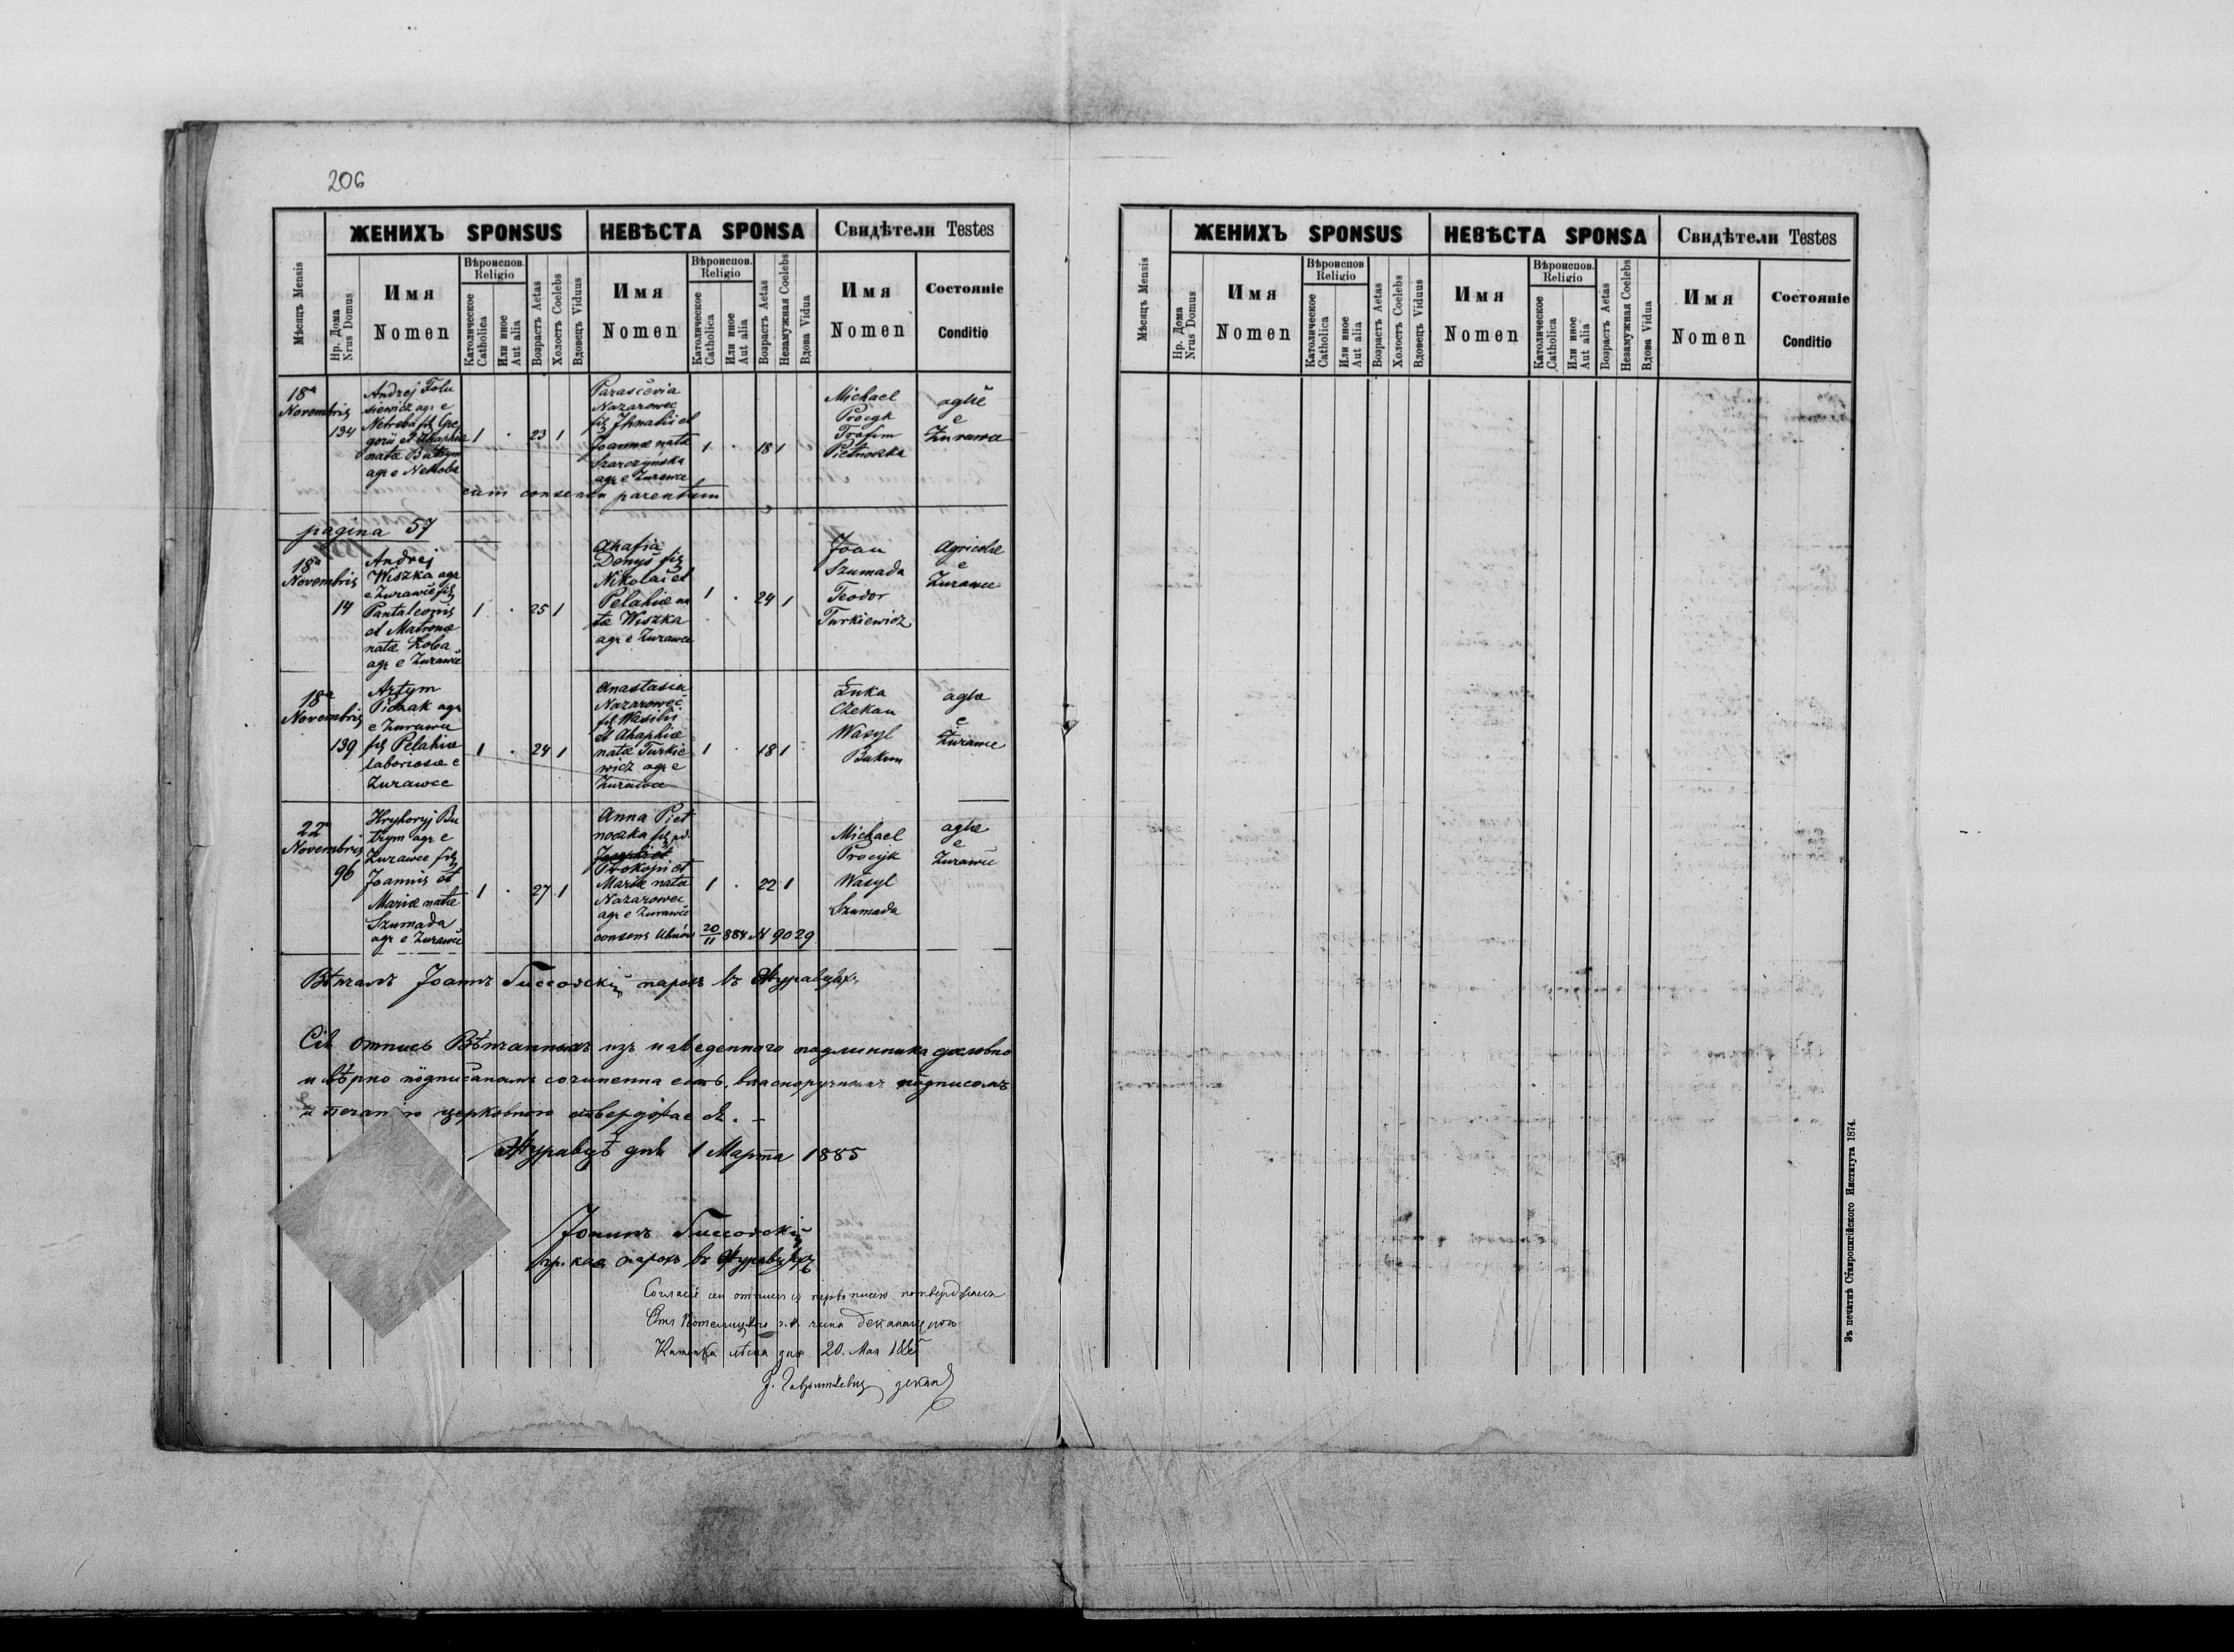 206
ЖЕНИХЪ SPONSUS НЕВѢСТА SPONSA Свидѣтели Testes
Мѣсяцъ Mensis
Нр. Дома
Nrus Domus
Имя
Nomen
Вѣроиспов.
Religio
Католическое
Catholica
Или иное
Aut alia
Возрастъ Aetas
Холостъ Coelebs
Вдовецъ Viduus
Имя
Nomen
Вѣроиспов.
Religio
Католическое
Catholica
Или иное
Aut alia
Возрастъ Aetas
Незамужная Coelebs
Вдова Vidua
Имя
Nomen
Состояніе
Conditio
18ª
Novembris
134
Andrej
siewicz agr e
Netreba fil Gre
gorii et Ahaphia
natae Butrym
agr e Netreba
1 . 23 1
Parascevia
Nazarowec
fil Ihnatii et
Joannae nata
Szarczyńska
agr e Zurawce
1 . 18 1
Michael
Procyk
Trofim
Pietnoczka
e
Zurawce
cum consensu parentum
pagina 57
18ª
Novembris
14
Andrej
Wiszka agr
e Zurawce fil
Pantaleonis
et Matronae
natae Zoba
agr e Zurawce
1 . 25 1
Ahafia
Denys fil
Nikolai et
Pelahiae na
tae Wiszka
agr e Zurawce
1 . 24 1
Joan
Szumada
Teodor
Turkiewicz
Agricolae
e
Zurawce
18ª
Novembris
139
Artym
Piczak agr
e Zurawce
fil Pelahiae
laboriosae e
Zurawce
1 . 24 1
Anastasia
Nazarowec
fil Wasilii
et Ahaphiae
natae Turkie
wicz agr e
Zurawce
1 . 18 1
Łuka
Czekan
Wasyl
Bakun
aglae
e
Zurawce
22ª
Novembris
96
Hryhoryj Bu
trym agr e
Zurawce fil
Joannis et
Mariae natae
Szumada
agr e Zurawce
1 . 27 1
Anna Piet
noczka fil
Prokopii et
Mariae nata
Nazarowec
agr e Zurawce
1 . 22 1
Michael
Procyk
Wasyl
Szumada
aglae
e
Zurawce
consens Uhnów 20/11 884 N 9029
Вѣнчалъ Іоаннъ парохъ въ Журавцяхъ
Сей отписъ Вѣнчанныхъ изъ наведенного подлинника дословно
и вѣрно сочиненна есть, власноручнымъ подписомъ
и печатію церковною
Журавцѣ дня 1 Марта 1885
Іоаннъ
гр. кат парохъ въ Журавцяхъ
Согласіе сеи отписи съ первописію потверджается
дня 20. Мая 1885
деканъ
ЖЕНИХЪ SPONSUS НЕВѢСТА SPONSA Свидѣтели Testes
Мѣсяцъ Mensis
Нр. Дома
Nrus Domus
Имя
Nomen
Вѣроиспов.
Religio
Католическое
Catholica
Или иное
Aut alia
Возрастъ Aetas
Холостъ Coelebs
Вдовецъ Viduus
Имя
Nomen
Вѣроиспов.
Religio
Католическое
Catholica
Или иное
Aut alia
Возрастъ Aetas
Незамужная Coelebs
Вдова Vidua
Имя
Nomen
Состояніе
Conditio
Зъ печатнѣ Ставропигійского Института 1874.